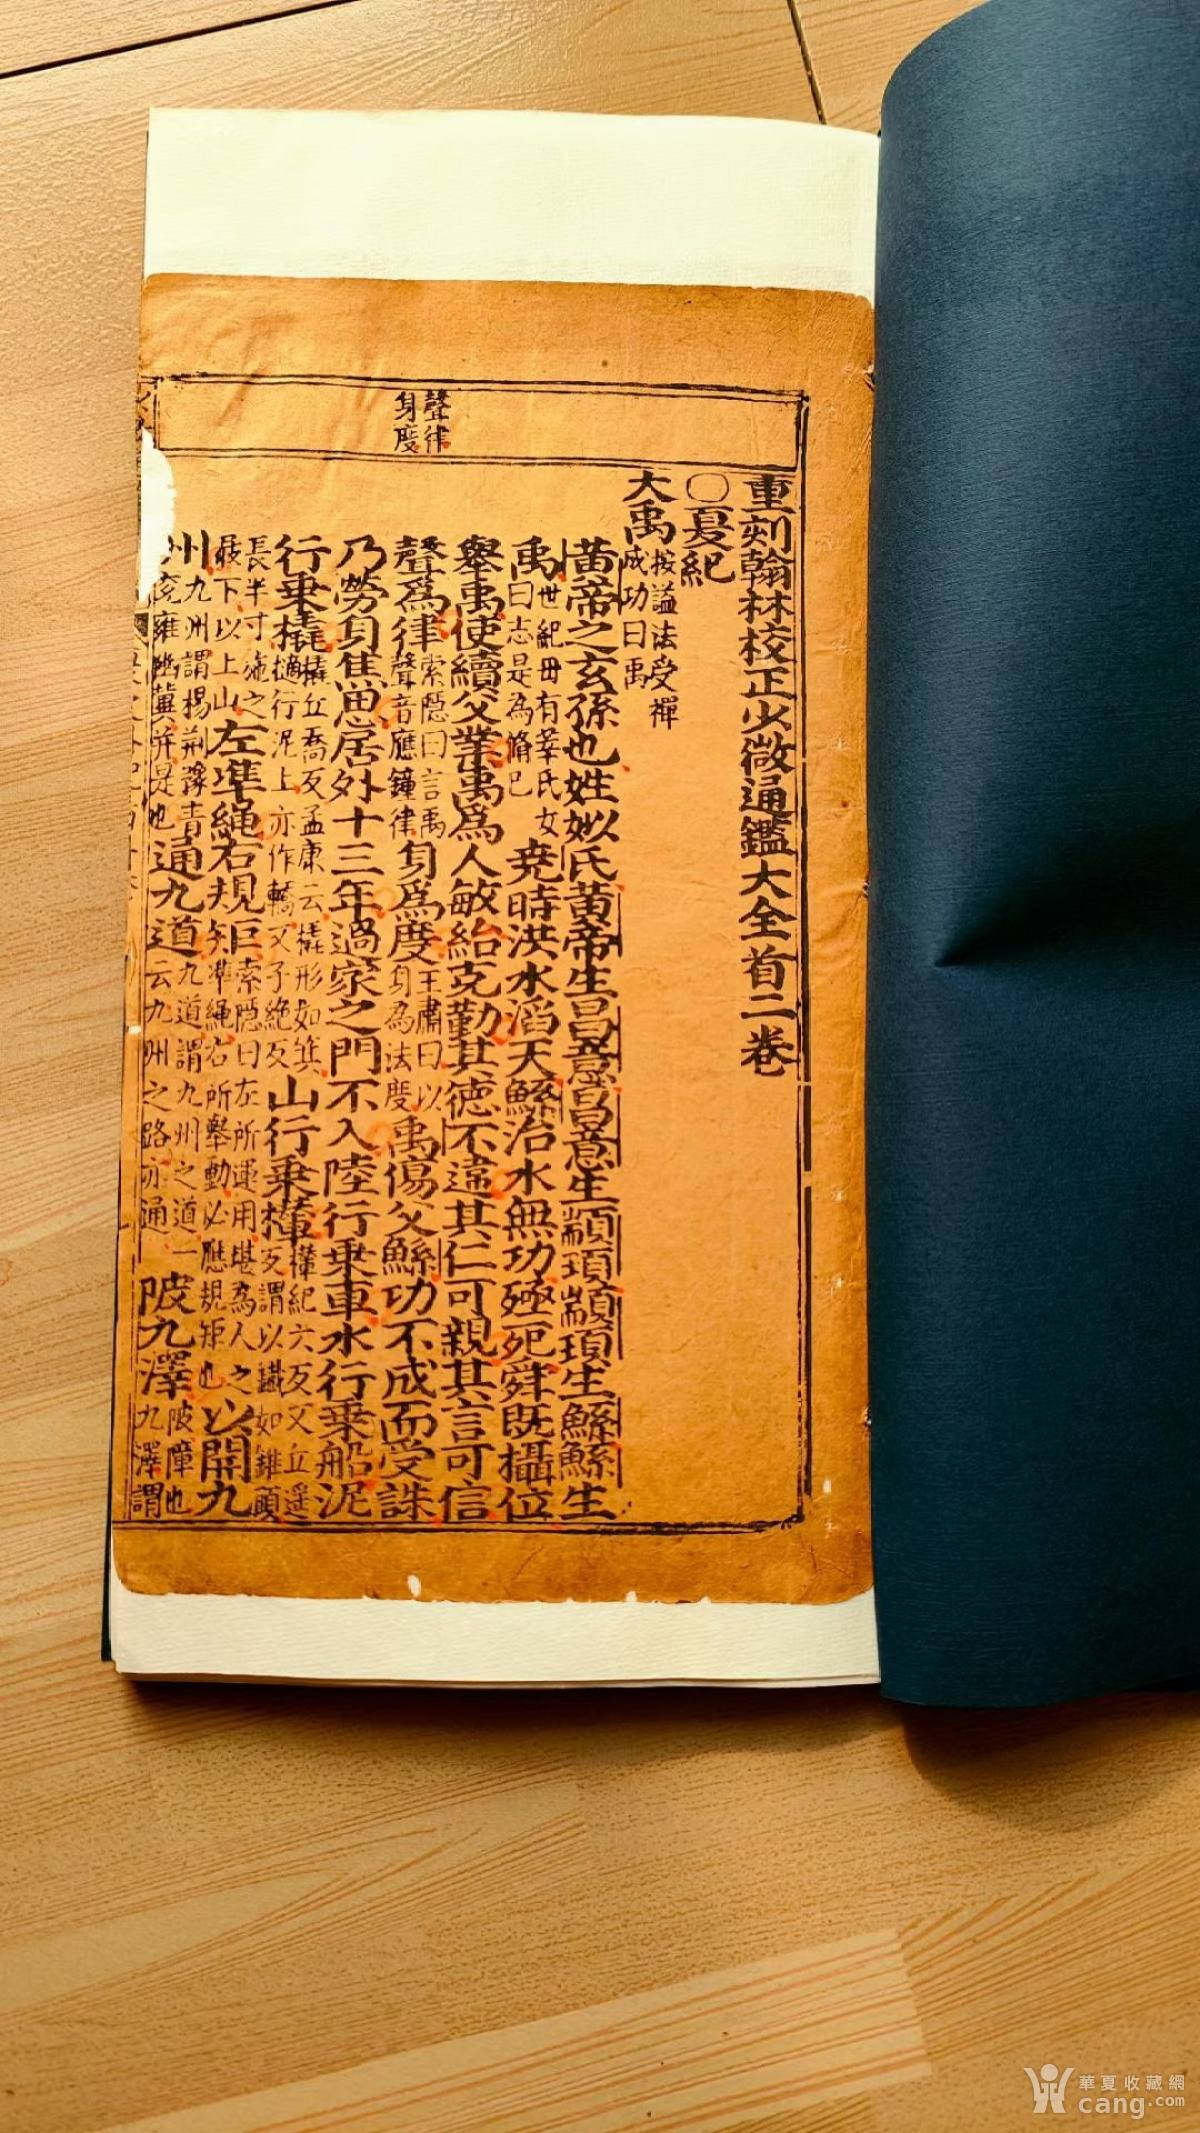 聲律
身度
重刻翰林校正少微通鑑大全首二卷
○夏紀
大禹按謚法受禪成功曰禹
黃帝之玄孫也姓姒氏黃帝生昌意昌意生顓頊顓頊生鯀鯀生
禹世紀毋有莘氏女曰志是為脩巳堯時洪水滔天鯀治水無功殛死舜既攝位
舉禹使續父業禹爲人敏給克勤其德不違其仁可親其言可信
聲爲律索隱曰言禹聲音應鐘律身爲度王肅曰以身為法度禹傷父鯀功不成而受誅
乃勞身焦思居外十三年過家之門不入陸行乘車水行乘船泥
行乘橇橇丘喬反孟康云橇形如箕擿行泥上亦作轎又子絶反山行乘檋檋紀六反又丘遥反謂以鐵如錐頭
長半寸施之屐下以上山左準繩右規矩索隱曰左所運用堪為人之準繩右所舉動必應規矩也以開九
州九洲謂楊荊豫青兖雍幽冀并是也通九道九道謂九州之道一云九州之路可通陂九澤陂障也九澤謂
華夏收藏網
cang.com